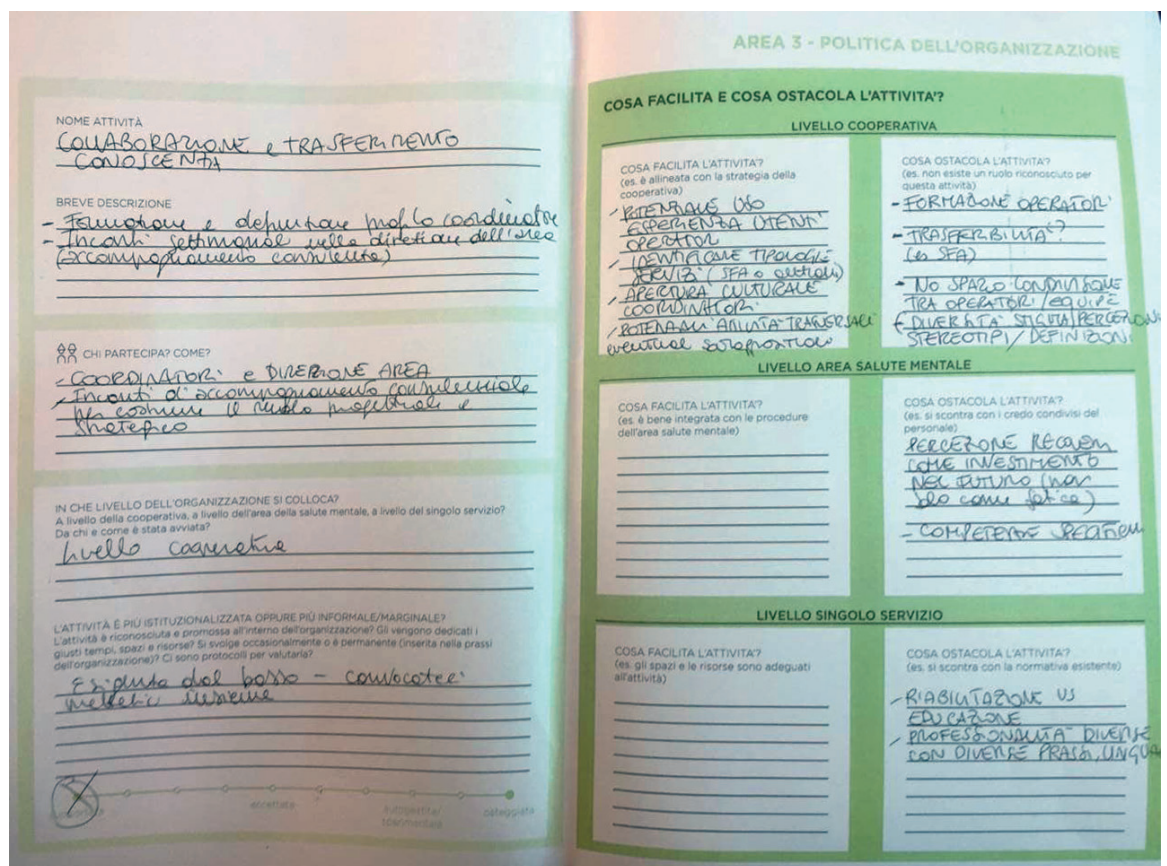 NOME ATTIVITÀ
COLLABORAZIONE e TRASFERIMENTO
CONOSCENZA
BREVE DESCRIZIONE
- Formazione e definizione coordinatore
- Incontri settimanali direzione dell'area
(accompagnamento consulente)
CHI PARTECIPA? COME?
- COORDINATORI e DIREZIONE AREA
- Incontri di accompagnamento consulenziale
per costruire il ruolo progettuale e
strategico
IN CHE LIVELLO DELL'ORGANIZZAZIONE SI COLLOCA?
A livello della cooperativa, a livello dell'area della salute mentale, a livello del singolo servizio?
Da chi e come è stata avviata?
Livello Cooperativa
L'ATTIVITÀ È PIÙ ISTITUZIONALIZZATA OPPURE PIÙ INFORMALE/MARGINALE?
L'attività è riconosciuta e promossa all'interno dell'organizzazione? Gli vengono dedicati i
giusti tempi, spazi e risorse? Si svolge occasionalmente o è permanente (inserita nella prassi
dell'organizzazione)? Ci sono protocolli per valutarla?
dal basso - convocateci
metteteci insieme
accettata
autogestita/
sperimentale
osteggiata
AREA 3 - POLITICA DELL'ORGANIZZAZIONE
COSA FACILITA E COSA OSTACOLA L'ATTIVITA'?
LIVELLO COOPERATIVA
COSA FACILITA L'ATTIVITA'?
(es. è allineata con la strategia della
cooperativa)
- POTENZIALE USO
ESPERIENZA UTENTI
OPERATORI
- IDENTIFICARE TIPOLOGIE
SERVIZI (SFA o
- APERTURA CULTURALE
COORDINATORI
- POTENZIALI TRASVERSALI
eventuali
COSA OSTACOLA L'ATTIVITA'?
(es. non esiste un ruolo riconosciuto per
questa attività)
- FORMAZIONE OPERATORI
- TRASFERIBILITA'?
(es SFA)
- NO SPAZIO CONDIVISIONE
TRA OPERATORI/EQUIPE
- DIVERSITÀ STIGMA/PERCEZIONI
STEREOTIPI/DEFINIZIONI
LIVELLO AREA SALUTE MENTALE
COSA FACILITA L'ATTIVITA'?
(es. è bene integrata con le procedure
dell'area salute mentale)
COSA OSTACOLA L'ATTIVITA'?
(es. si scontra con i credo condivisi del
personale)
PERCEZIONE RECOVERY
COME INVESTIMENTO
NEL FUTURO (non
solo come fatica)
- COMPETENZE SPECIFICHE
LIVELLO SINGOLO SERVIZIO
COSA FACILITA L'ATTIVITA'?
(es. gli spazi e le risorse sono adeguati
all'attività)
COSA OSTACOLA L'ATTIVITA'?
(es. si scontra con la normativa esistente)
- RIABILITAZIONE VS
EDUCAZIONE
- PROFESSIONALITÀ DIVERSE
CON DIVERSE PRASSI, LINGUA